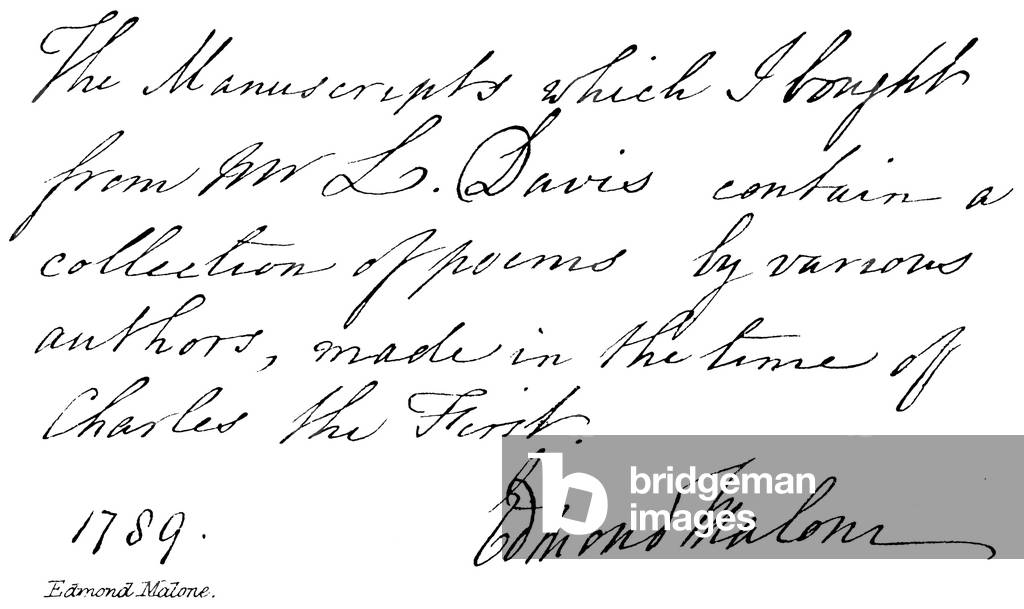 The Manuscripts which I bought
from Mr L. Davis contain a
collection of poems by various
authors, made in the time of
Charles the First.
1789.
Edmond Malone
Edmond Malone.
bridgeman
images